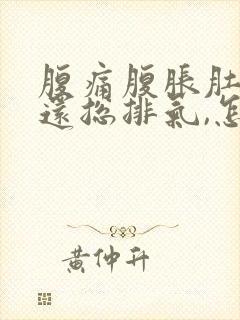 腹痛腹脹肚
還總排氣,怎
黃仲升